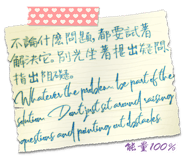 不論什麼問題，都要試著
解決它。別光坐著提出疑問、
指出阻礙。
Whatever the problem be part of the
solution. Don't just sit around raising
questions and pointing out obstacles
能量100%